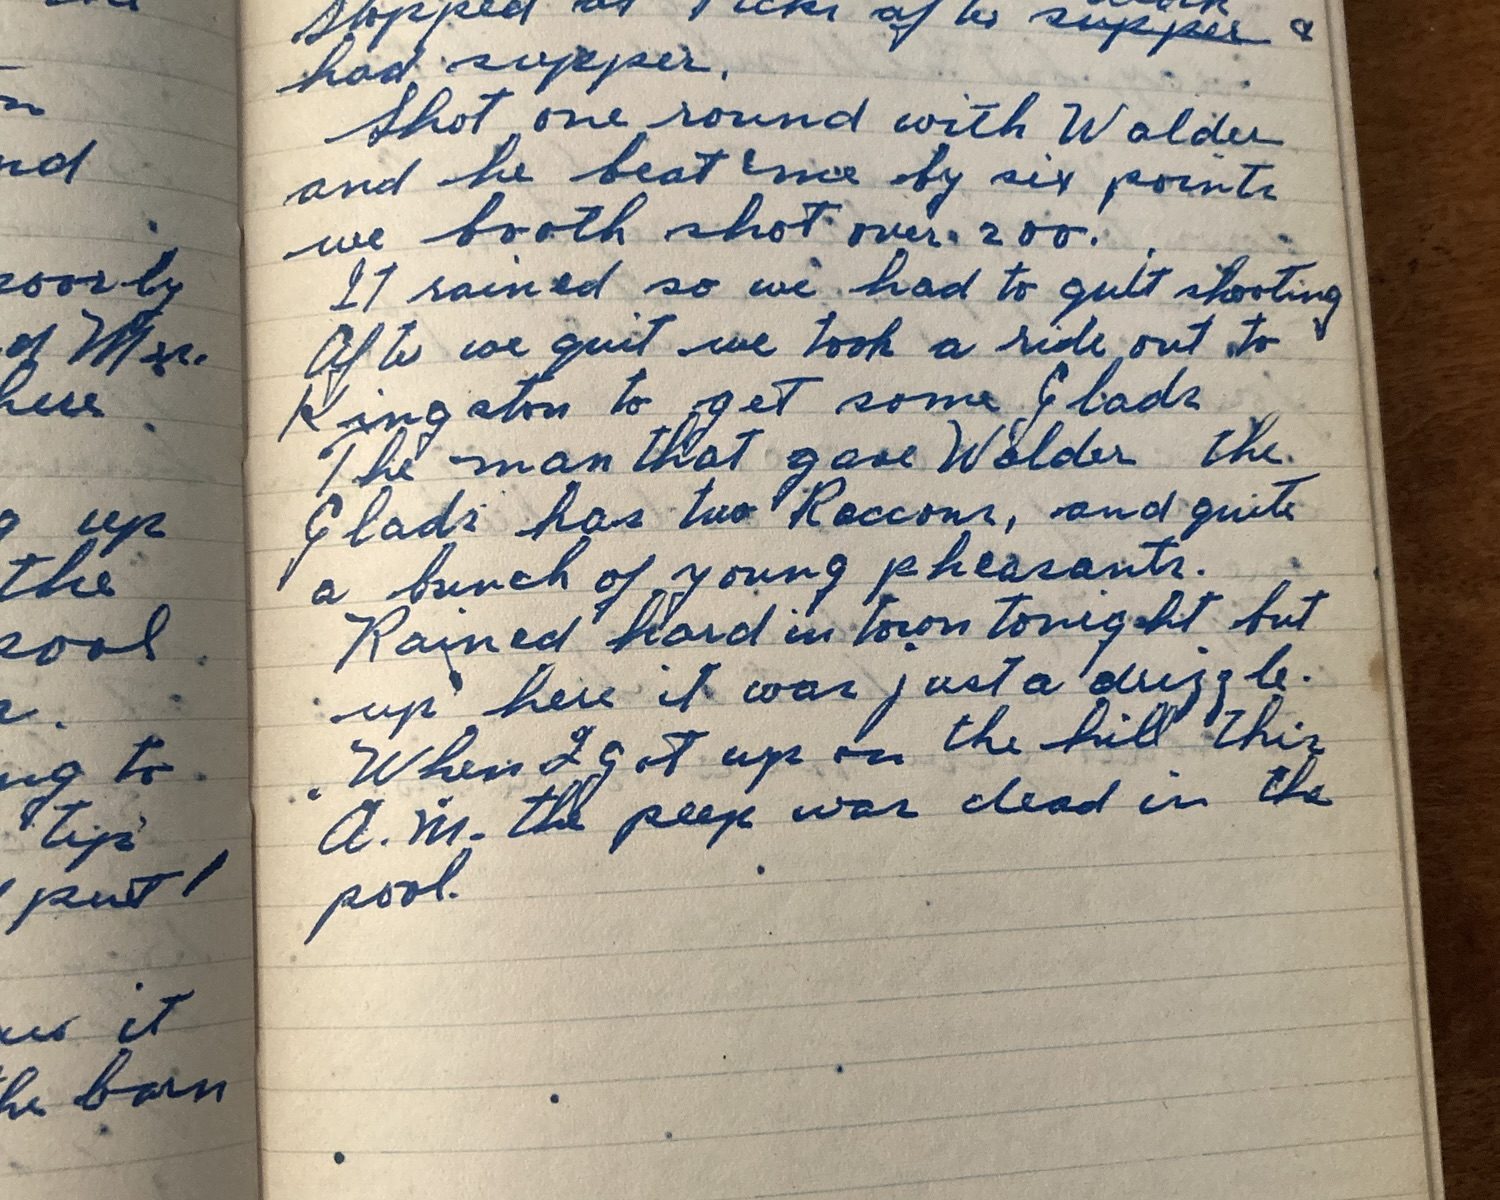 nd
poorly
d Mrs.
here
g up
the
pool.
ng to
tip
put
it
the barn
Stopped at after supper &
had supper.
Shot one round with Walder
and he beat me by six points
we booth shot over 200.
It rained so we had to quit shooting
After we quit we took a ride out to
Kingston to get some Glads
The man that gave Walder the
Glads has two Raccons, and quite
a bunch of young pheasants.
Rained hard in town tonight but
up here it was just a drizzle.
When I got up on the hill this
A.M. the peep was dead in the
pool.